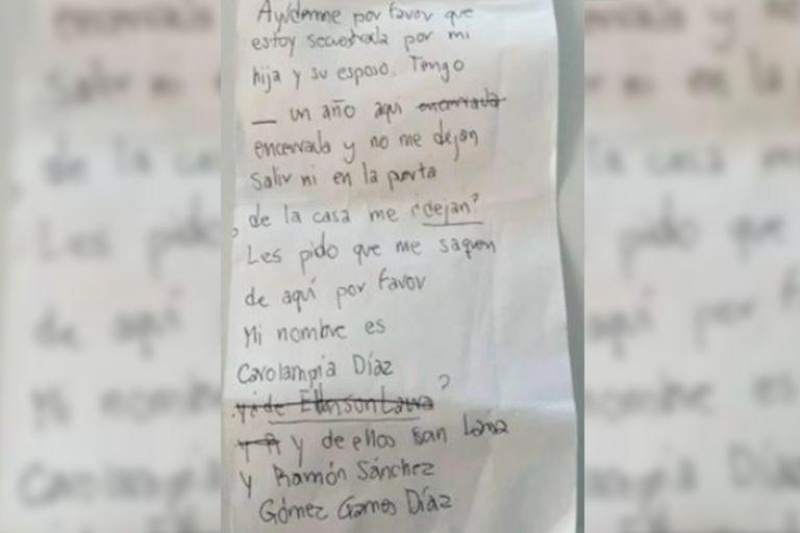 Ayúdenme por favor que
estoy secuestrada por mi
hija y su esposo. Tengo
_ un año aqui encerrada
encerrada y no me dejan
Salir ni en la perta
de la casa me ¿dejan?
Les pido que me saquen
de aquí por favor
Mi nombre es
Carolampia Díaz
?
y de ellos son Lana
Y Ramón Sánchez
Gómez Gamos Díaz